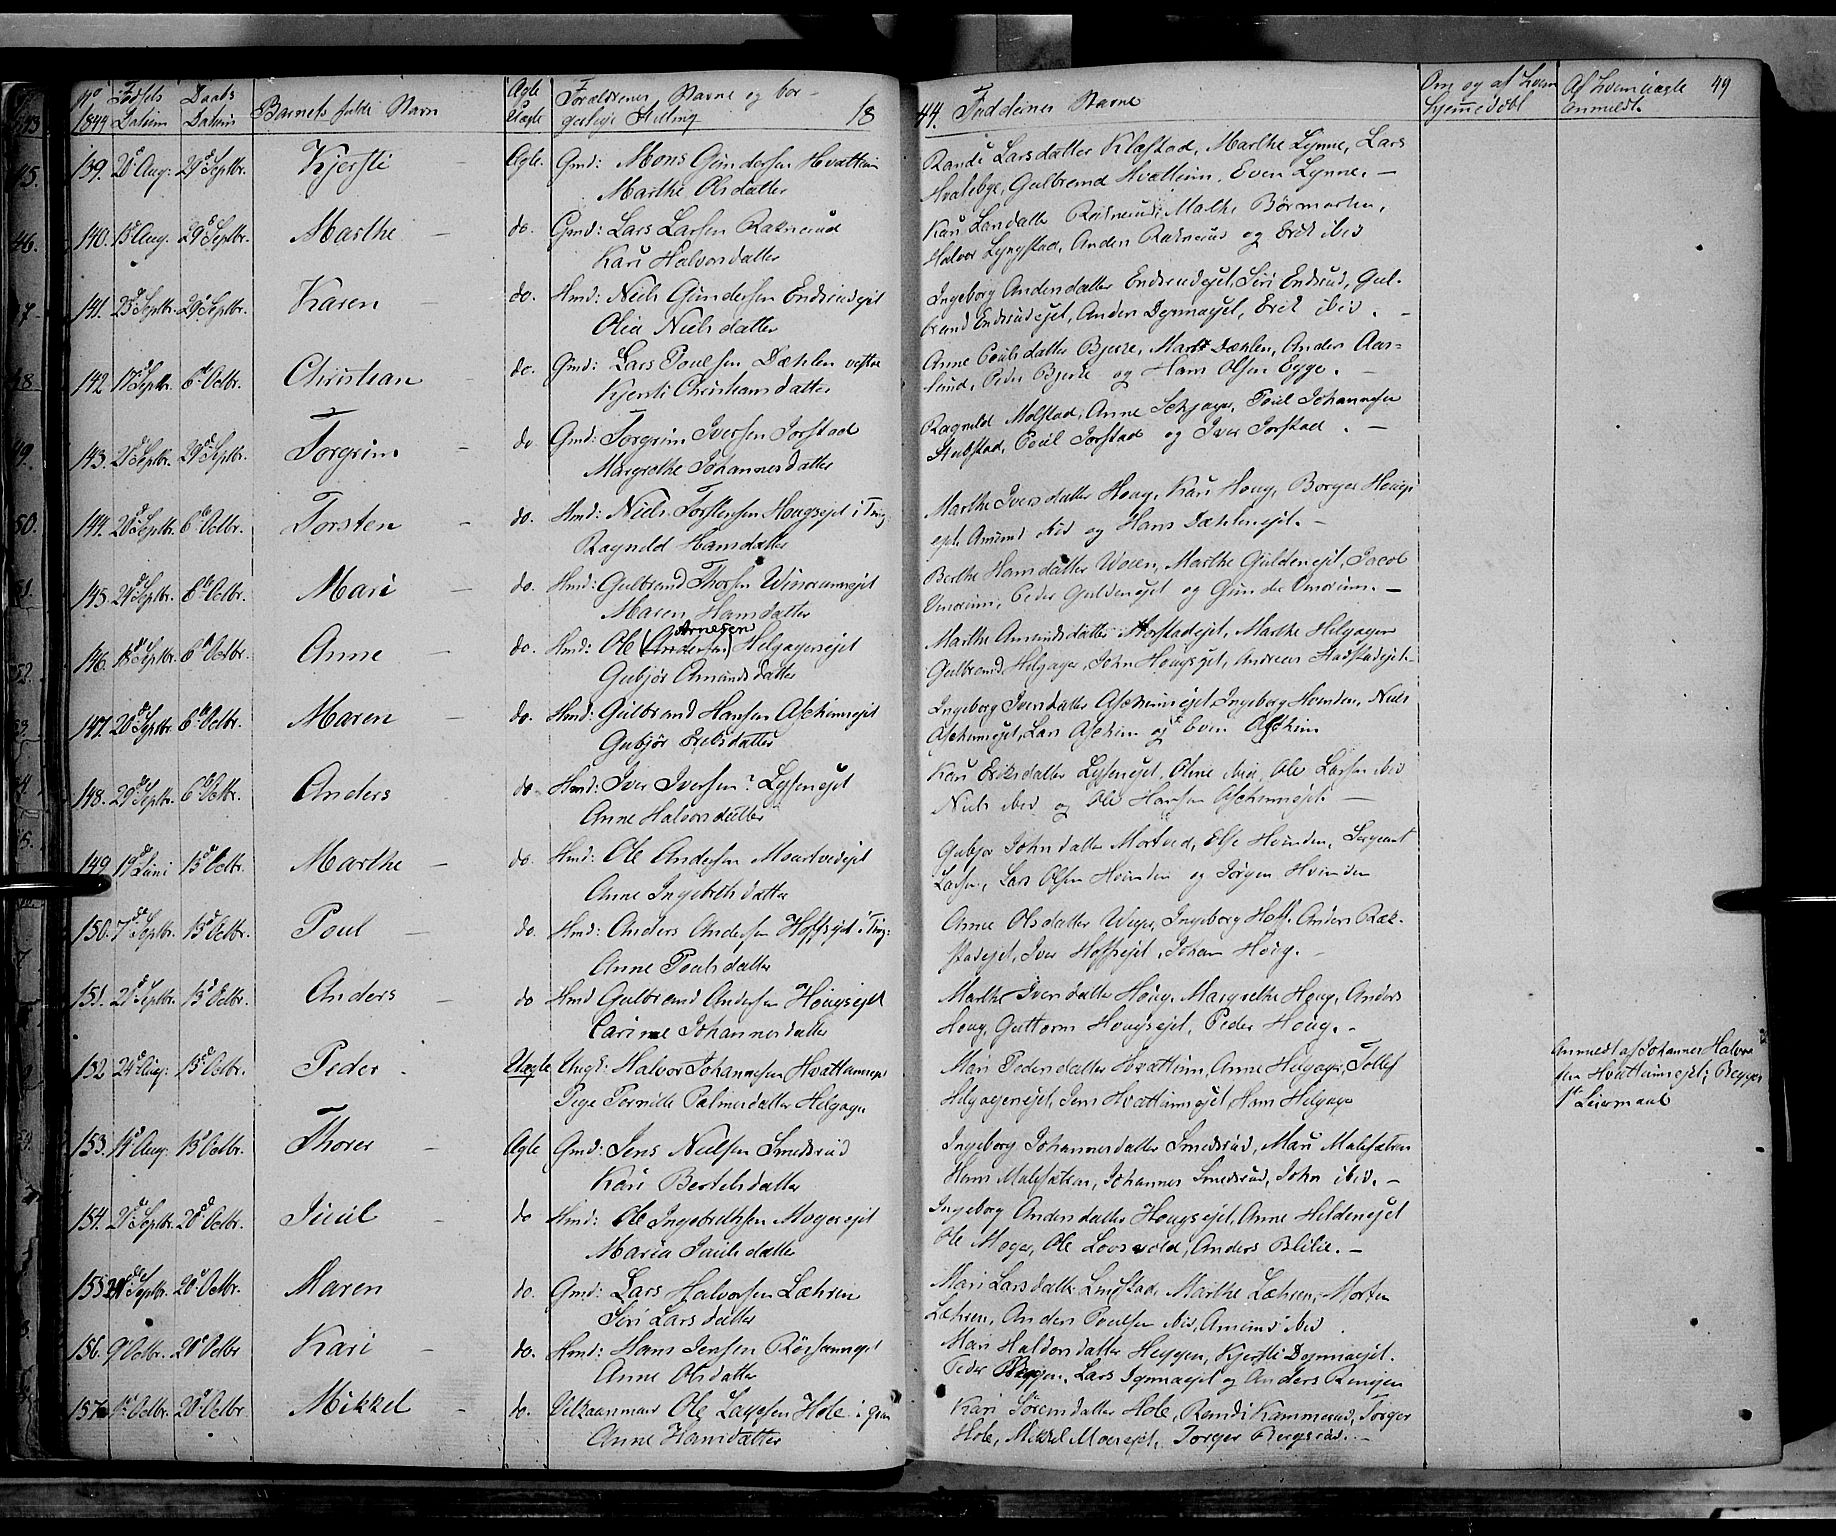 No 1844 Fødsels Datum Daabs Datum Barnets fulde Navn Ægte Uægte Forældrenes Navne og borgerlige Stilling 18
44. Faddernes Navne Om og af hvem hjemmedøbt Af hvem uægte anmeldt. 49
139. 20 Aug: 29 Septbr. Kjersti Ægte. Gmd: Mons Gundersen Hvattum
Marthe Olsdatter
Randi Larsdatter Klæstad, Marthe Lynne, Lars
Hvalebye, Gulbrand Hvattum, Even Lynne. —
140. 15 Aug. 29 Septbr. Marthe do. Gmd: Lars Larsen Raknerud
Kari Halvorsdatter
Kari Larsdatter Raknerud, Malhe Børmarken,
Halvor Lyngstad, Anders Raknerud og Erik ibid
141. 23 Septbr. 29 Septbr. Karen do. Hmd: Niels Gundersen Endrudejet
Olia Nielsdatter
Ingeborg Andersdatter Endrudejet, Siri Endrud, Gul-
brand Endrudejet, Anders Dynnaejet, Erik ibid. —
142. 17 Septbr. 6 Octbr. Christian do. Gmd: Lars Poulsen Dæhlen vestre
Kjersti Christiansdatter
Anne Poulsdatter Bjerke, Marthe Dæhlen, Anders Aas-
lund, Peder Bjerke og Hans Olsen Egge. —
143. 21 Septbr. 29 Septbr. Torgrim do Gmd: Torgrim Iversen Jorstad
Margrethe Johannesdatter
Ragnild Molstad, Anne Schjager, Poul Johannesen
Stubstad, Poul Jorstad og Iver Jorstad. —
144. 20 Septbr. 6 Octbr. Torsten do. Hmd: Niels Torstensen Hougsejet i Ting:
Ragnild Hansdatter
Marthe Iversdatter Houg, Kari Houg, Borger Hougs-
ejet, Amund ibid og Hans Dæhlenejet. —
145. 24 Septbr. 6 Octbr. Mari do. Hmd: Gulbrand Thorsen Winorumejet
Maren Hansdatter
Berthe Hansdatter Woien, Marthe Guldenejet, Jacob
Vinorum, Peder Guldenejet og Gunder Vinorum. —
146. 18 Septbr. 6 Octbr. Anne do. Hmd: Ole (Andersen) Arnesen Helgagerejet
Gubjør Amundsdatter
Marthe Amundsdatter Horstadejet, Marthe Helgager
Gulbrand Helgager, John Hougsejet, Andreas Stadstadejet.
147. 20 Septbr. 6 Octbr. Maren do. Hmd: Gulbrand Hansen Aschimejet
Gubjør Eriksdatter
Ingeborg Iversdatter Aschimejet, Ingeborg Hvinden, Niels
Aschimejet, Lars Aschim og Even Aschim
148. 29 Septbr. 6 Octbr. Anders do. Hmd: Iver Iversen: Lysenejet
Anne Halvorsdatter
Kari Eriksdatter Lysenejet, Oline ibid, Ole Larsen ibid
Niels ibid og Ole Hansen Aschimejet. —
149 19 Juni 13 Octbr. Marthe — do. Hmd: Ole Andersen Moortvedejet
Anne Ingebrethsdatter
Gubjør Johnsdatter Mortved, Else Hvinden, Sergeant
Larsen, Lars Olsen Hvinden og Jørgen Hvinden
150. 7 Septbr. 13 Octbr. Poul — do. Hmd: Anders Andersen Hoffsejet i Ting:
Anne Poulsdatter
Anne Olsdatter Wien, Ingeborg Hoff, Anders Ræk-
stadejet, Iver Hoffsejet, Johan Houg. —
151. 21 Septbr. 13 Octbr. Anders — do Hmd Gulbrand Andersen Hougsejet
Carine Johannesdatter
Marthe Iversdatter Houg, Margrethe Houg, Anders
Houg, Guttorm Hougsejet, Peder Houg. —
152 24 Aug: 13 Octbr. Peder Uægte Ungk: Halvor Johannesen Hvattumejet
Pige Pernille Palmersdatter Helgager
Mari Pedersdatter Hvattum, Anne Helgager, Tollef
Helgagerejet, Jens Hvattumejet, Hans Helgager
Anmeldt af Johannes Halvor-
sen Hvattumejet; Begges
1ste Leiermaal
153. 14 Aug: 13 Octbr. Thorer — Ægte Gmd: Jens Nielsen Smedsrud
Kari Bertelsdatter
Ingeborg Johannesdatter Smedsrud, Mari Malesætren
Hans Malesætren, Johannes Smedsrud, John ibid. —
154. 21 Septbr. 20 Octbr. Juul — do Hmd: Ole Ingebrethsen Mogerejet
Maria Paulsdatter
Ingeborg Andersdatter Hougsejet, Anne Hildenejet
Ole Moger, Ole Loosvold, Anders Blilie. —
155 21 Septbr. 20 Octbr. Maren do. Gmd: Lars Halvorsen Læhren
Siri Larsdatter
Mari Larsdatter Lundstad, Marthe Læhren, Morten
Læhren, Anders Poulsen ibid, Amund ibid.
156. 9 Octbr. 20 Octbr Kari — do. Hmd: Hans Jensen Røssumejet
Anne Olsdatter
Mari Haldorsdatter Heggen, Kjersti Dynnaejet.
Peder Heggen, Lars Dynnaejet og Anders Rengen
157. 1 Octbr. 20 Octbr. Mikkel — do. Selkaarmand Ole Larsen Hole i Gran
Anne Hansdatter
Kari Sørensdatter Hole, Randi Kammerud, Torger
Hole, Mikkel Moerejet, Torger Bergsrud. —